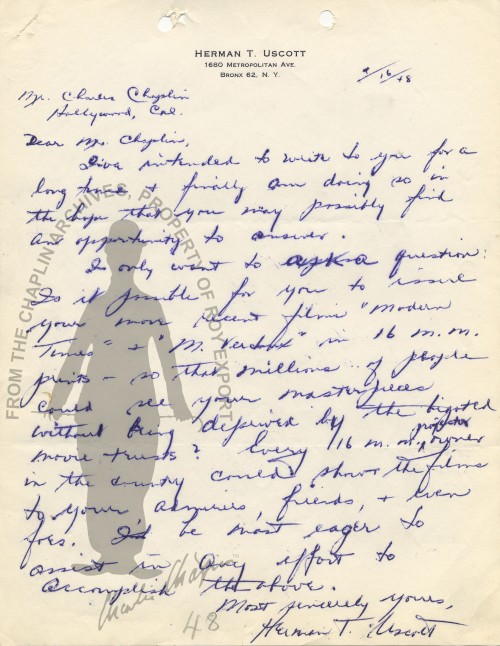 HERMAN T. USCOTT
1680 METROPOLITAN AVE.
BRONX 62, N. Y.
9/16/48
Mr. Charles Chaplin
Hollywood, Cal.
Dear Mr. Chaplin,
I've intended to write to you for a
long time & finally am doing so in
the hope that you may possibly find
an opportunity to answer.
I only want to ask a question:
Is it possible for you to issue
your more recent films "Modern
Times" & "M. Verdoux" in 16 m.m.
prints – so that millions of people
could see your masterpieces
without being deprived by the bigoted
movie trusts? Every 16 m.m. projector owner
in the country could show the films
to your admirers, friends, & even
foes. I'd be most eager to
assist in any effort to
accomplish the above.
Most sincerely yours,
Herman T. Uscott
Charlie Chaplin
48
FROM THE CHAPLIN ARCHIVES, PROPERTY OF ROY EXPORT